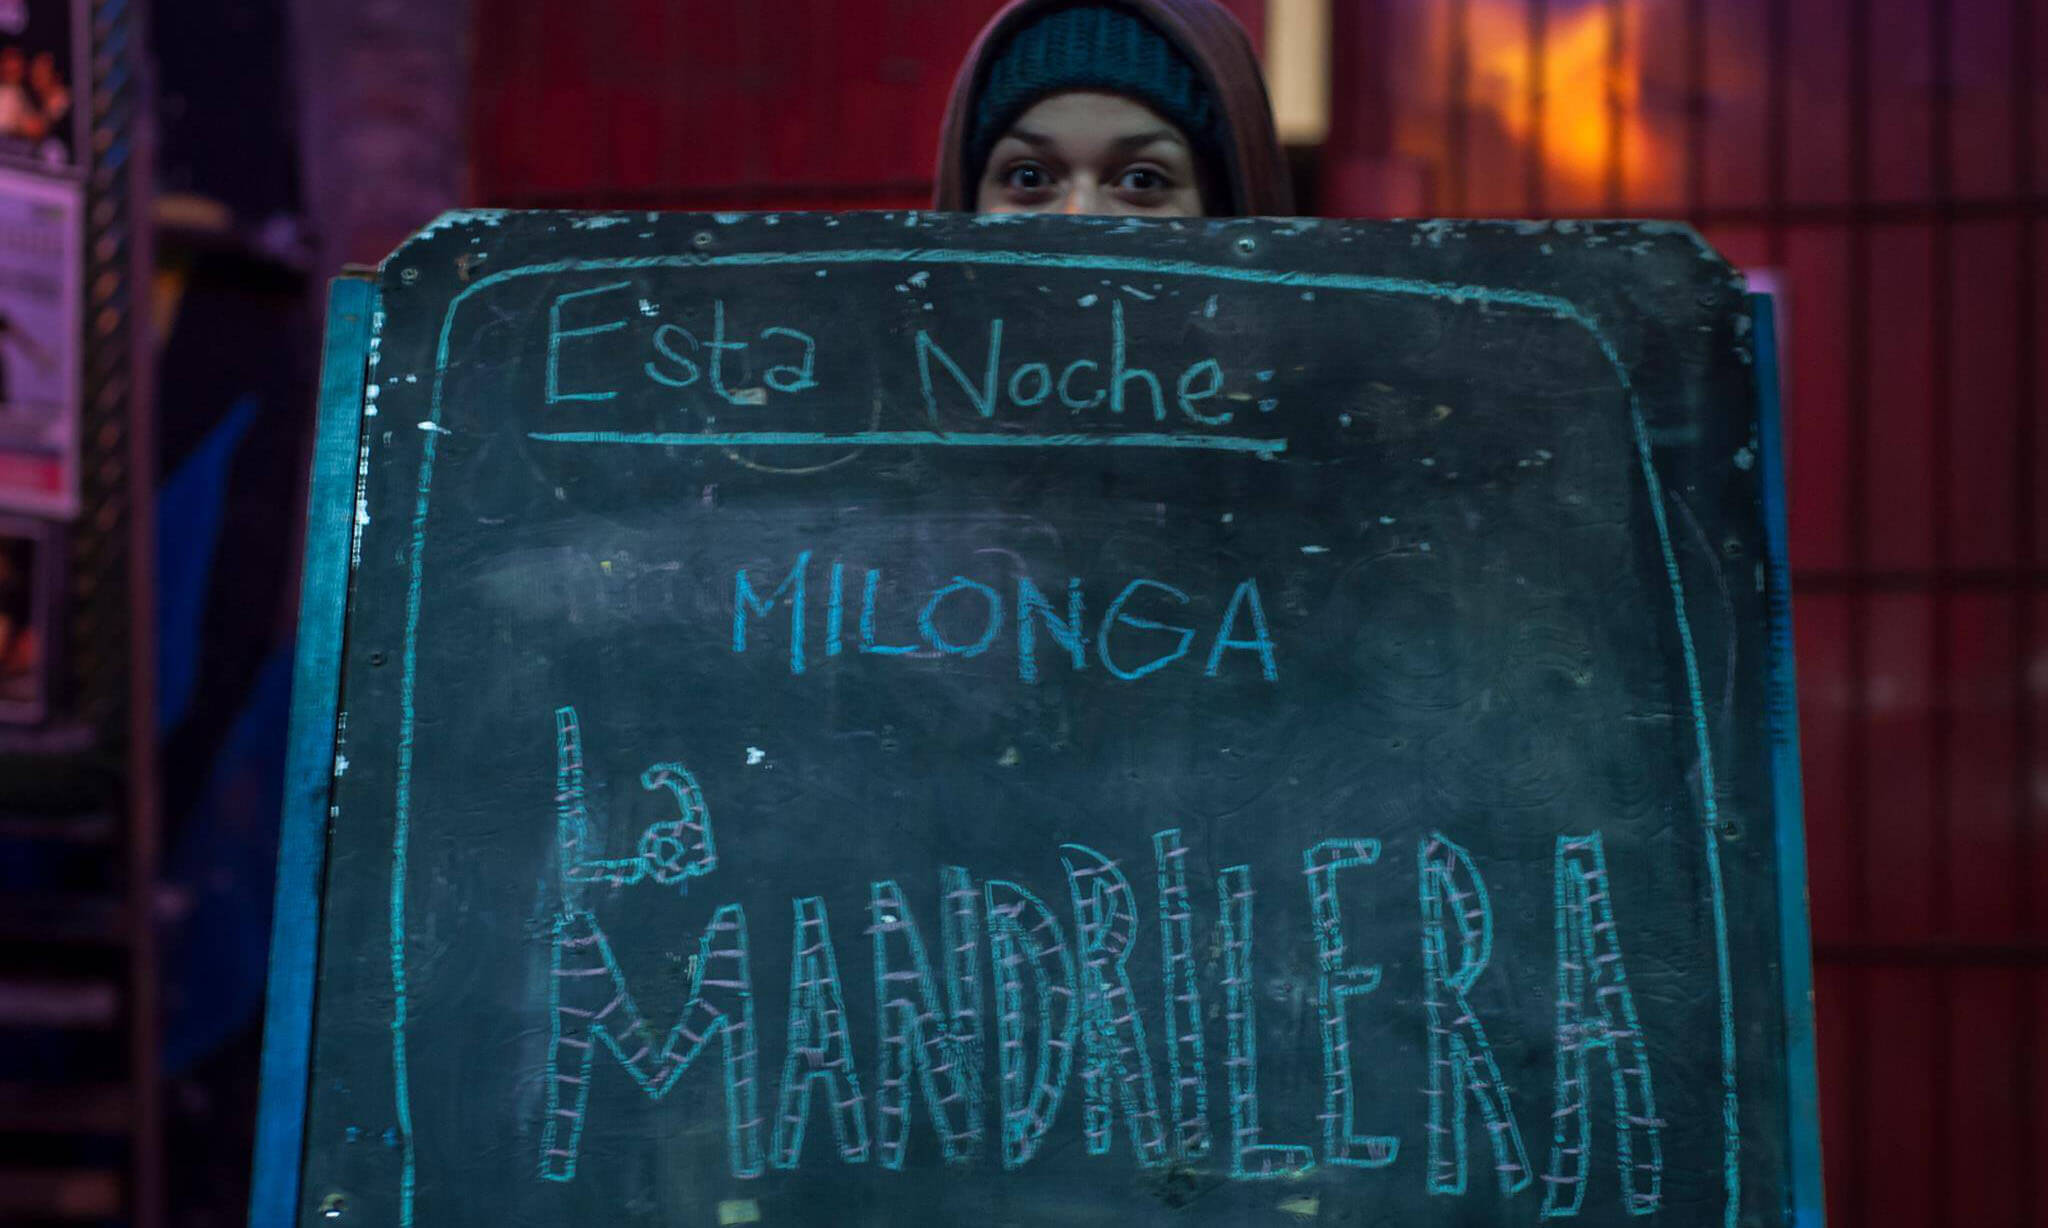 Esta Noche:
MILONGA
La
MANDRILERA